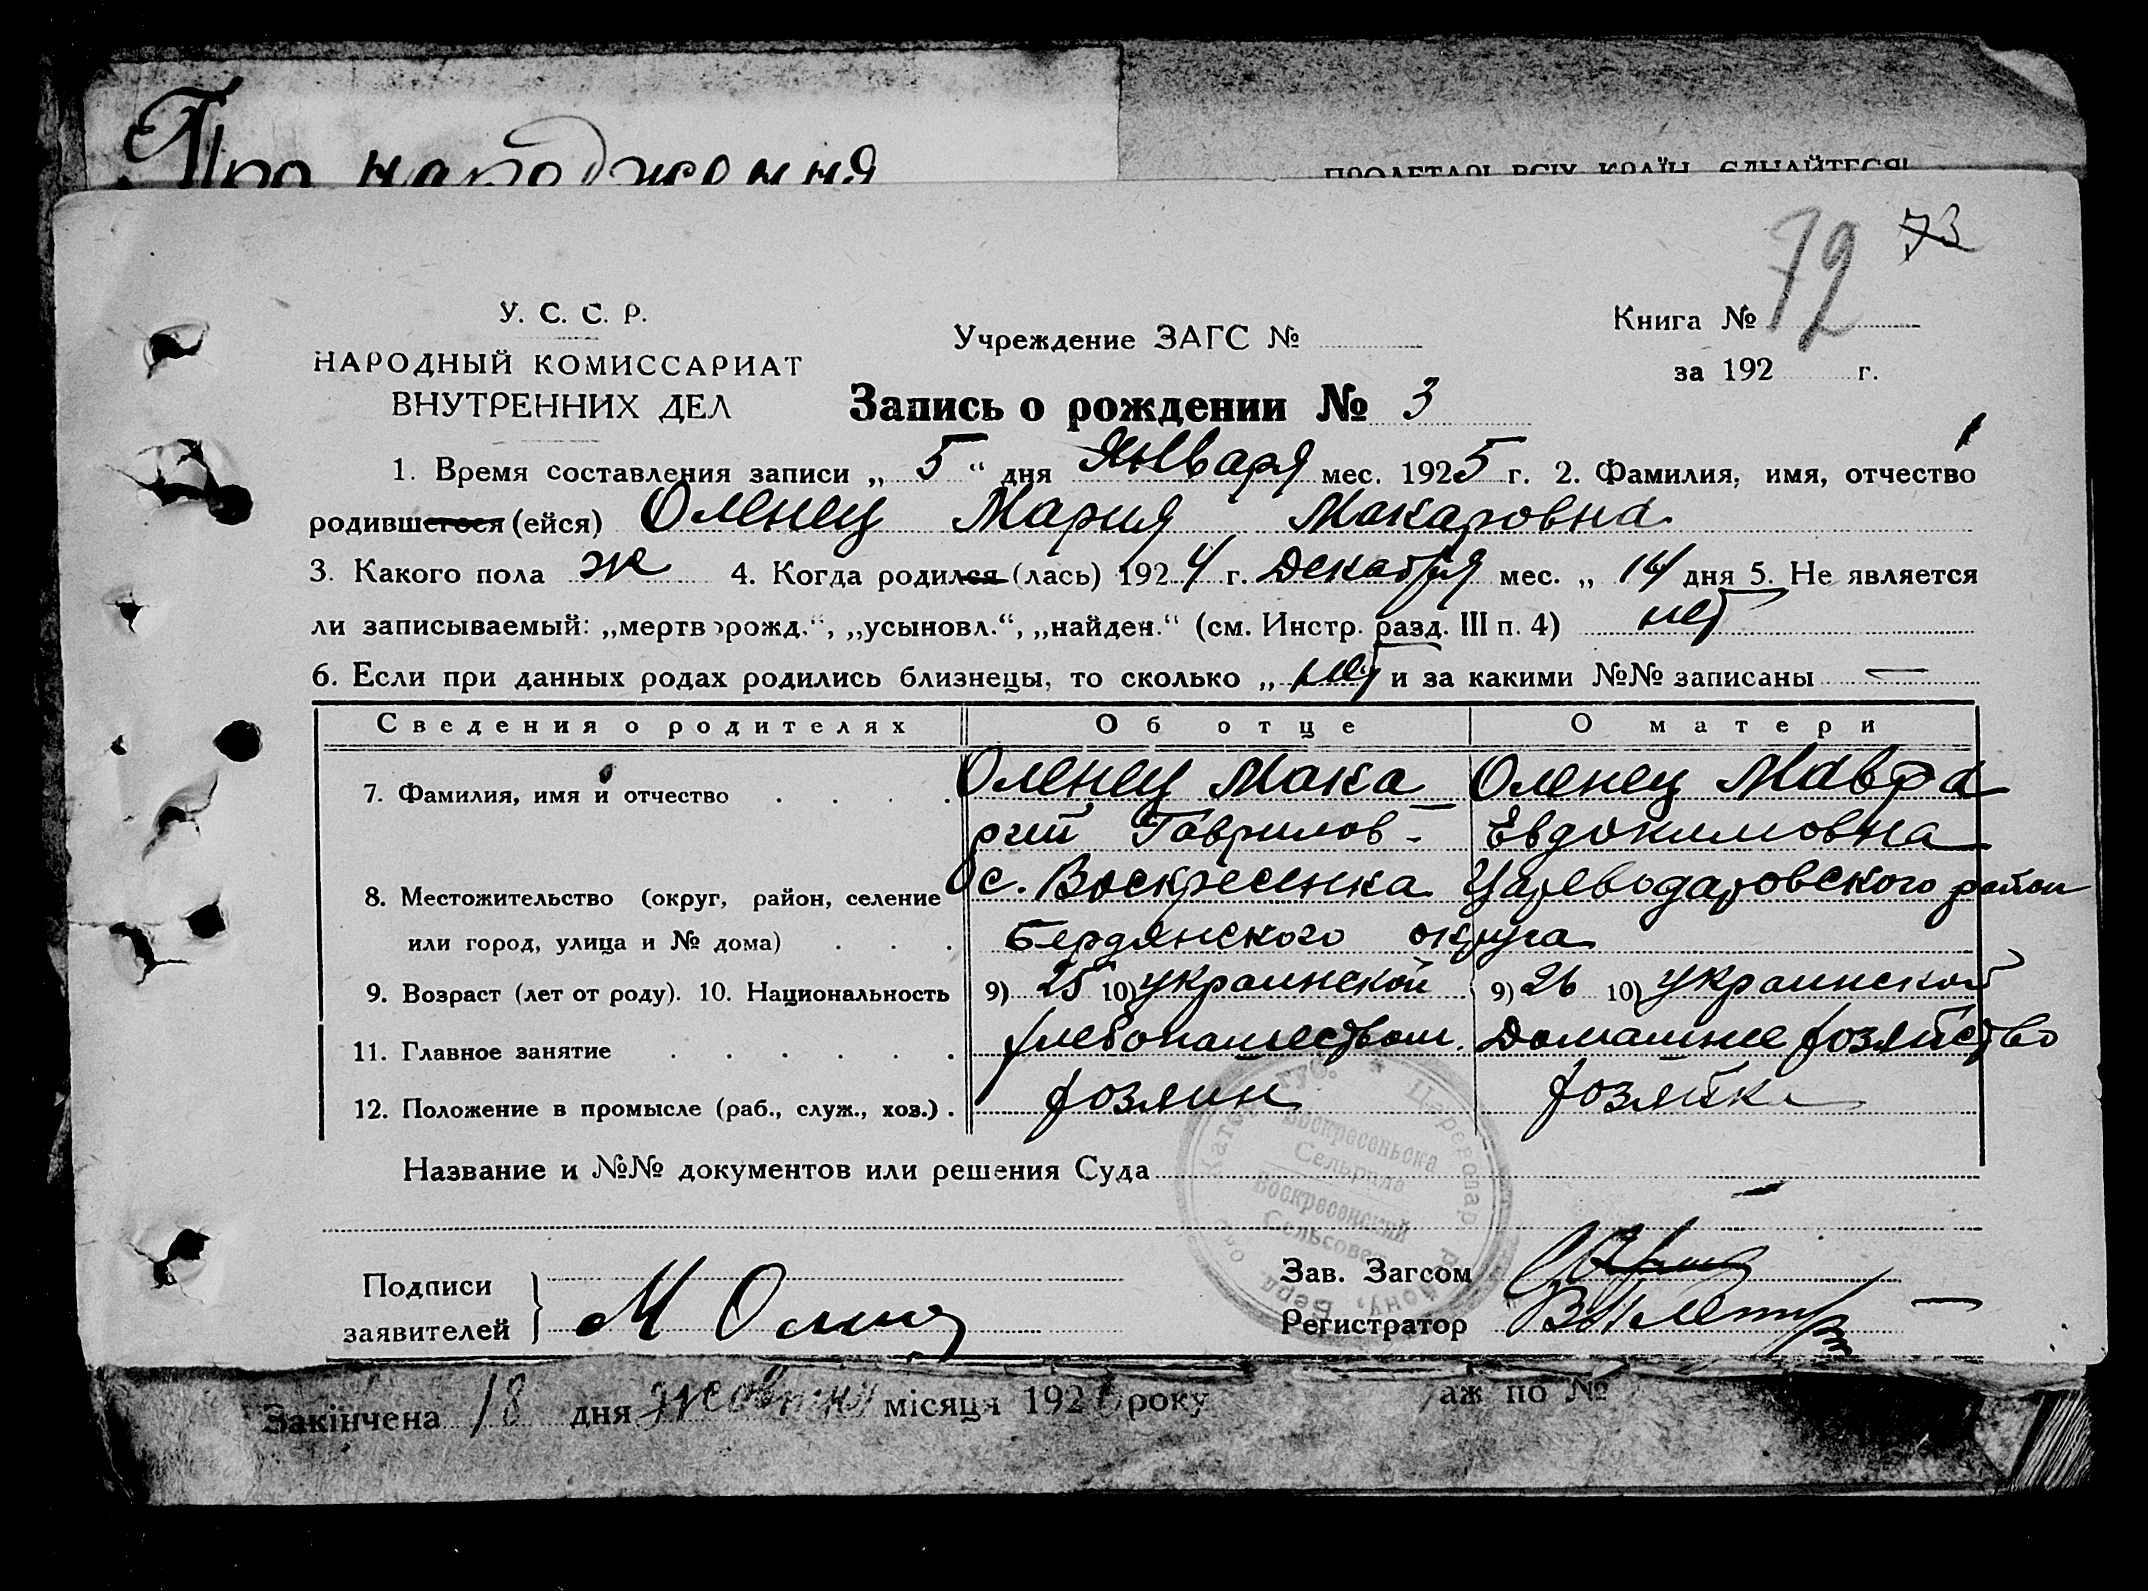 Про народження
ПРОЛЕТАРІ ВСІХ КРАЇН, ЄДНАЙТЕСЯ!
72 73
У. С. С. Р.
НАРОДНЫЙ КОМИССАРИАТ
ВНУТРЕННИХ ДЕЛ
Учреждение ЗАГС №
Книга №
за 192 г.
Запись о рождении № 3
1. Время составления записи „ 5 “ дня Января мес. 1925 г. 2. Фамилия, имя, отчество
родившегося (ейся) Оленец Мария Макаровна
3. Какого пола ж 4. Когда родился (лась) 1924 г. Декабря мес. „ 14 дня 5. Не является
ли записываемый: „мертворожд.“, „усыновл.“, „найден.“ (см. Инстр. разд. III п. 4) нет
6. Если при данных родах родились близнецы, то сколько „ нет и за какими №№ записаны —
Сведения о родителях Об отце О матери
7. Фамилия, имя и отчество Оленец Мака Оленец Мавра
рий Гаврилов- Евдокимовна
8. Местожительство (округ, район, селение с. Воскресенка Цареводаровского район
или город, улица и № дома) Бердянского округа
9. Возраст (лет от роду). 10. Национальность 9) 25 10) украинской 9) 26 10) украинской
11. Главное занятие хлебопашеством. Домашнее хозяйство
12. Положение в промысле (раб., служ., хоз.) хозяин хозяйка
Название и №№ документов или решения Суда
Воскресенська
Сельрада
Воскресенский
Сельсовет
Подписи
заявителей М Оленец
Зав. Загсом
Регистратор
Закінчена 18 дня жовтня місяця 192 року аж по №